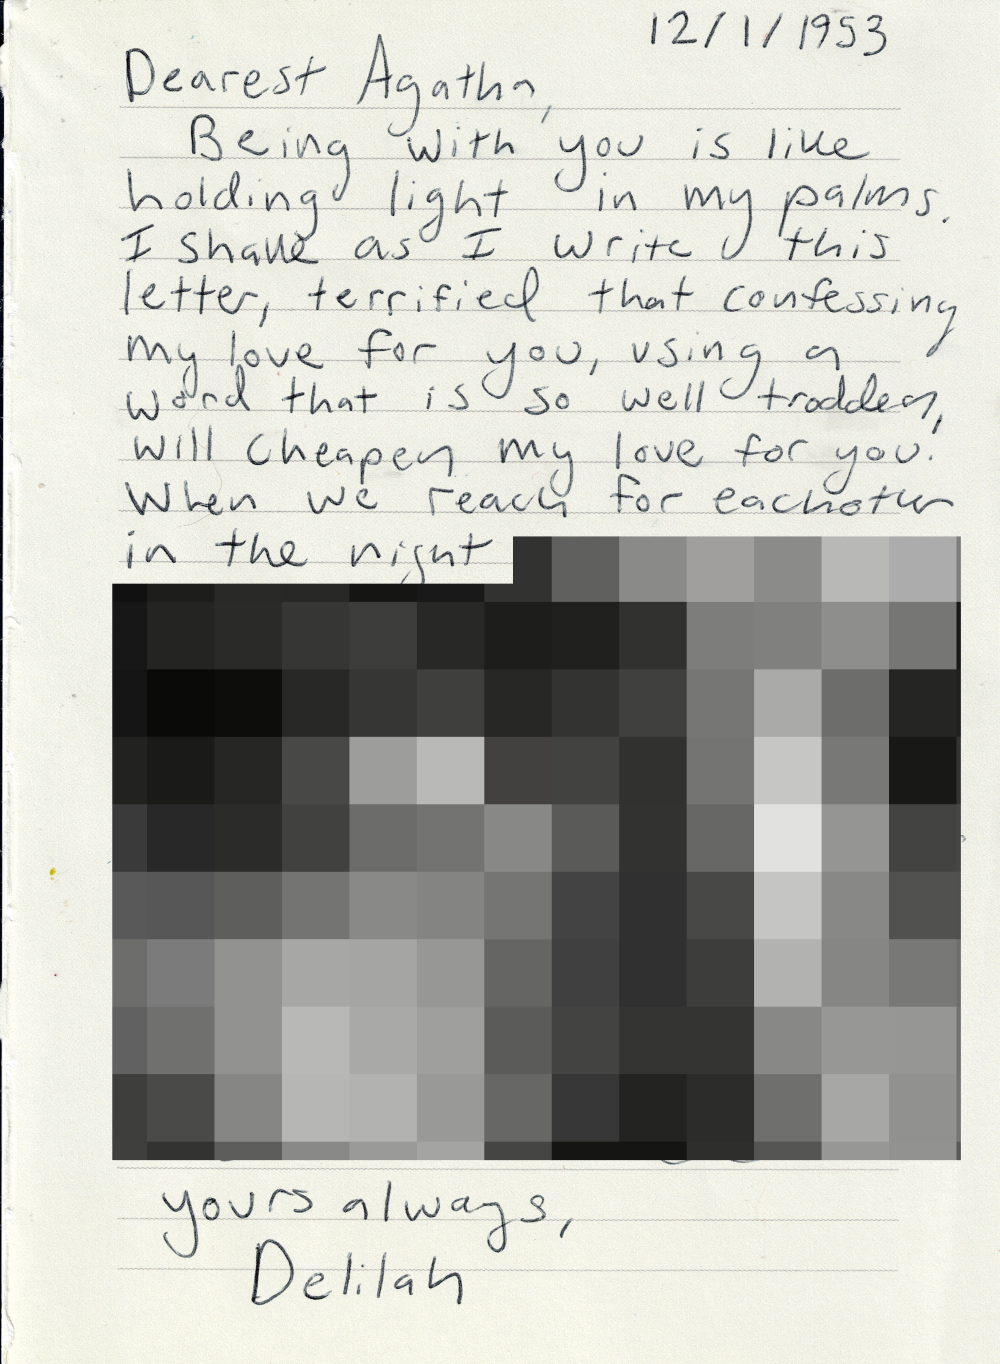 12/1/1953
Dearest Agatha,
Being with you is like
holding light in my palms.
I shake as I write this
letter, terrified that confessing
my love for you, using a
word that is so well trodden,
will cheapen my love for you.
When we reach for eachother
in the night
yours always,
Delilah